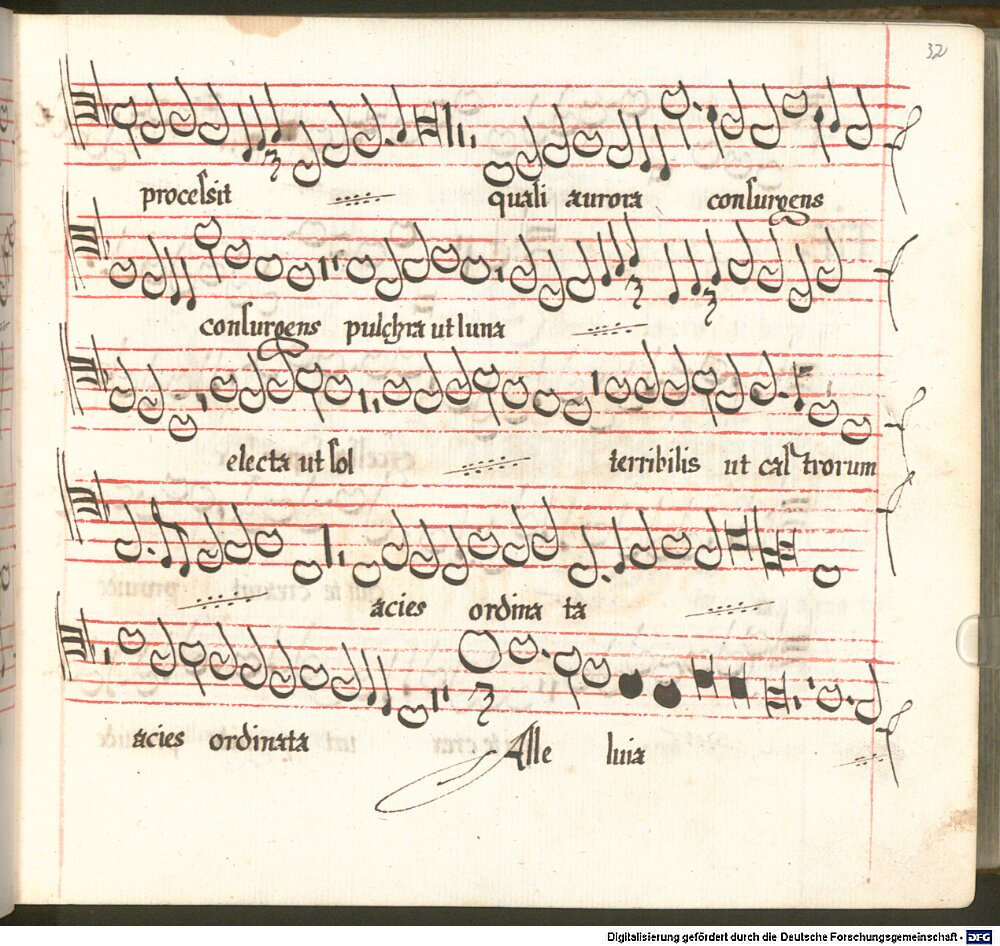 32
procesſit quali aurora conſurgens
conſurgens pulchra ut luna
electa ut ſol terribilis ut caſtrorum
acies ordinata
acies ordinata Alle luia
Digitalisierung gefördert durch die Deutsche Forschungsgemeinschaft - DFG